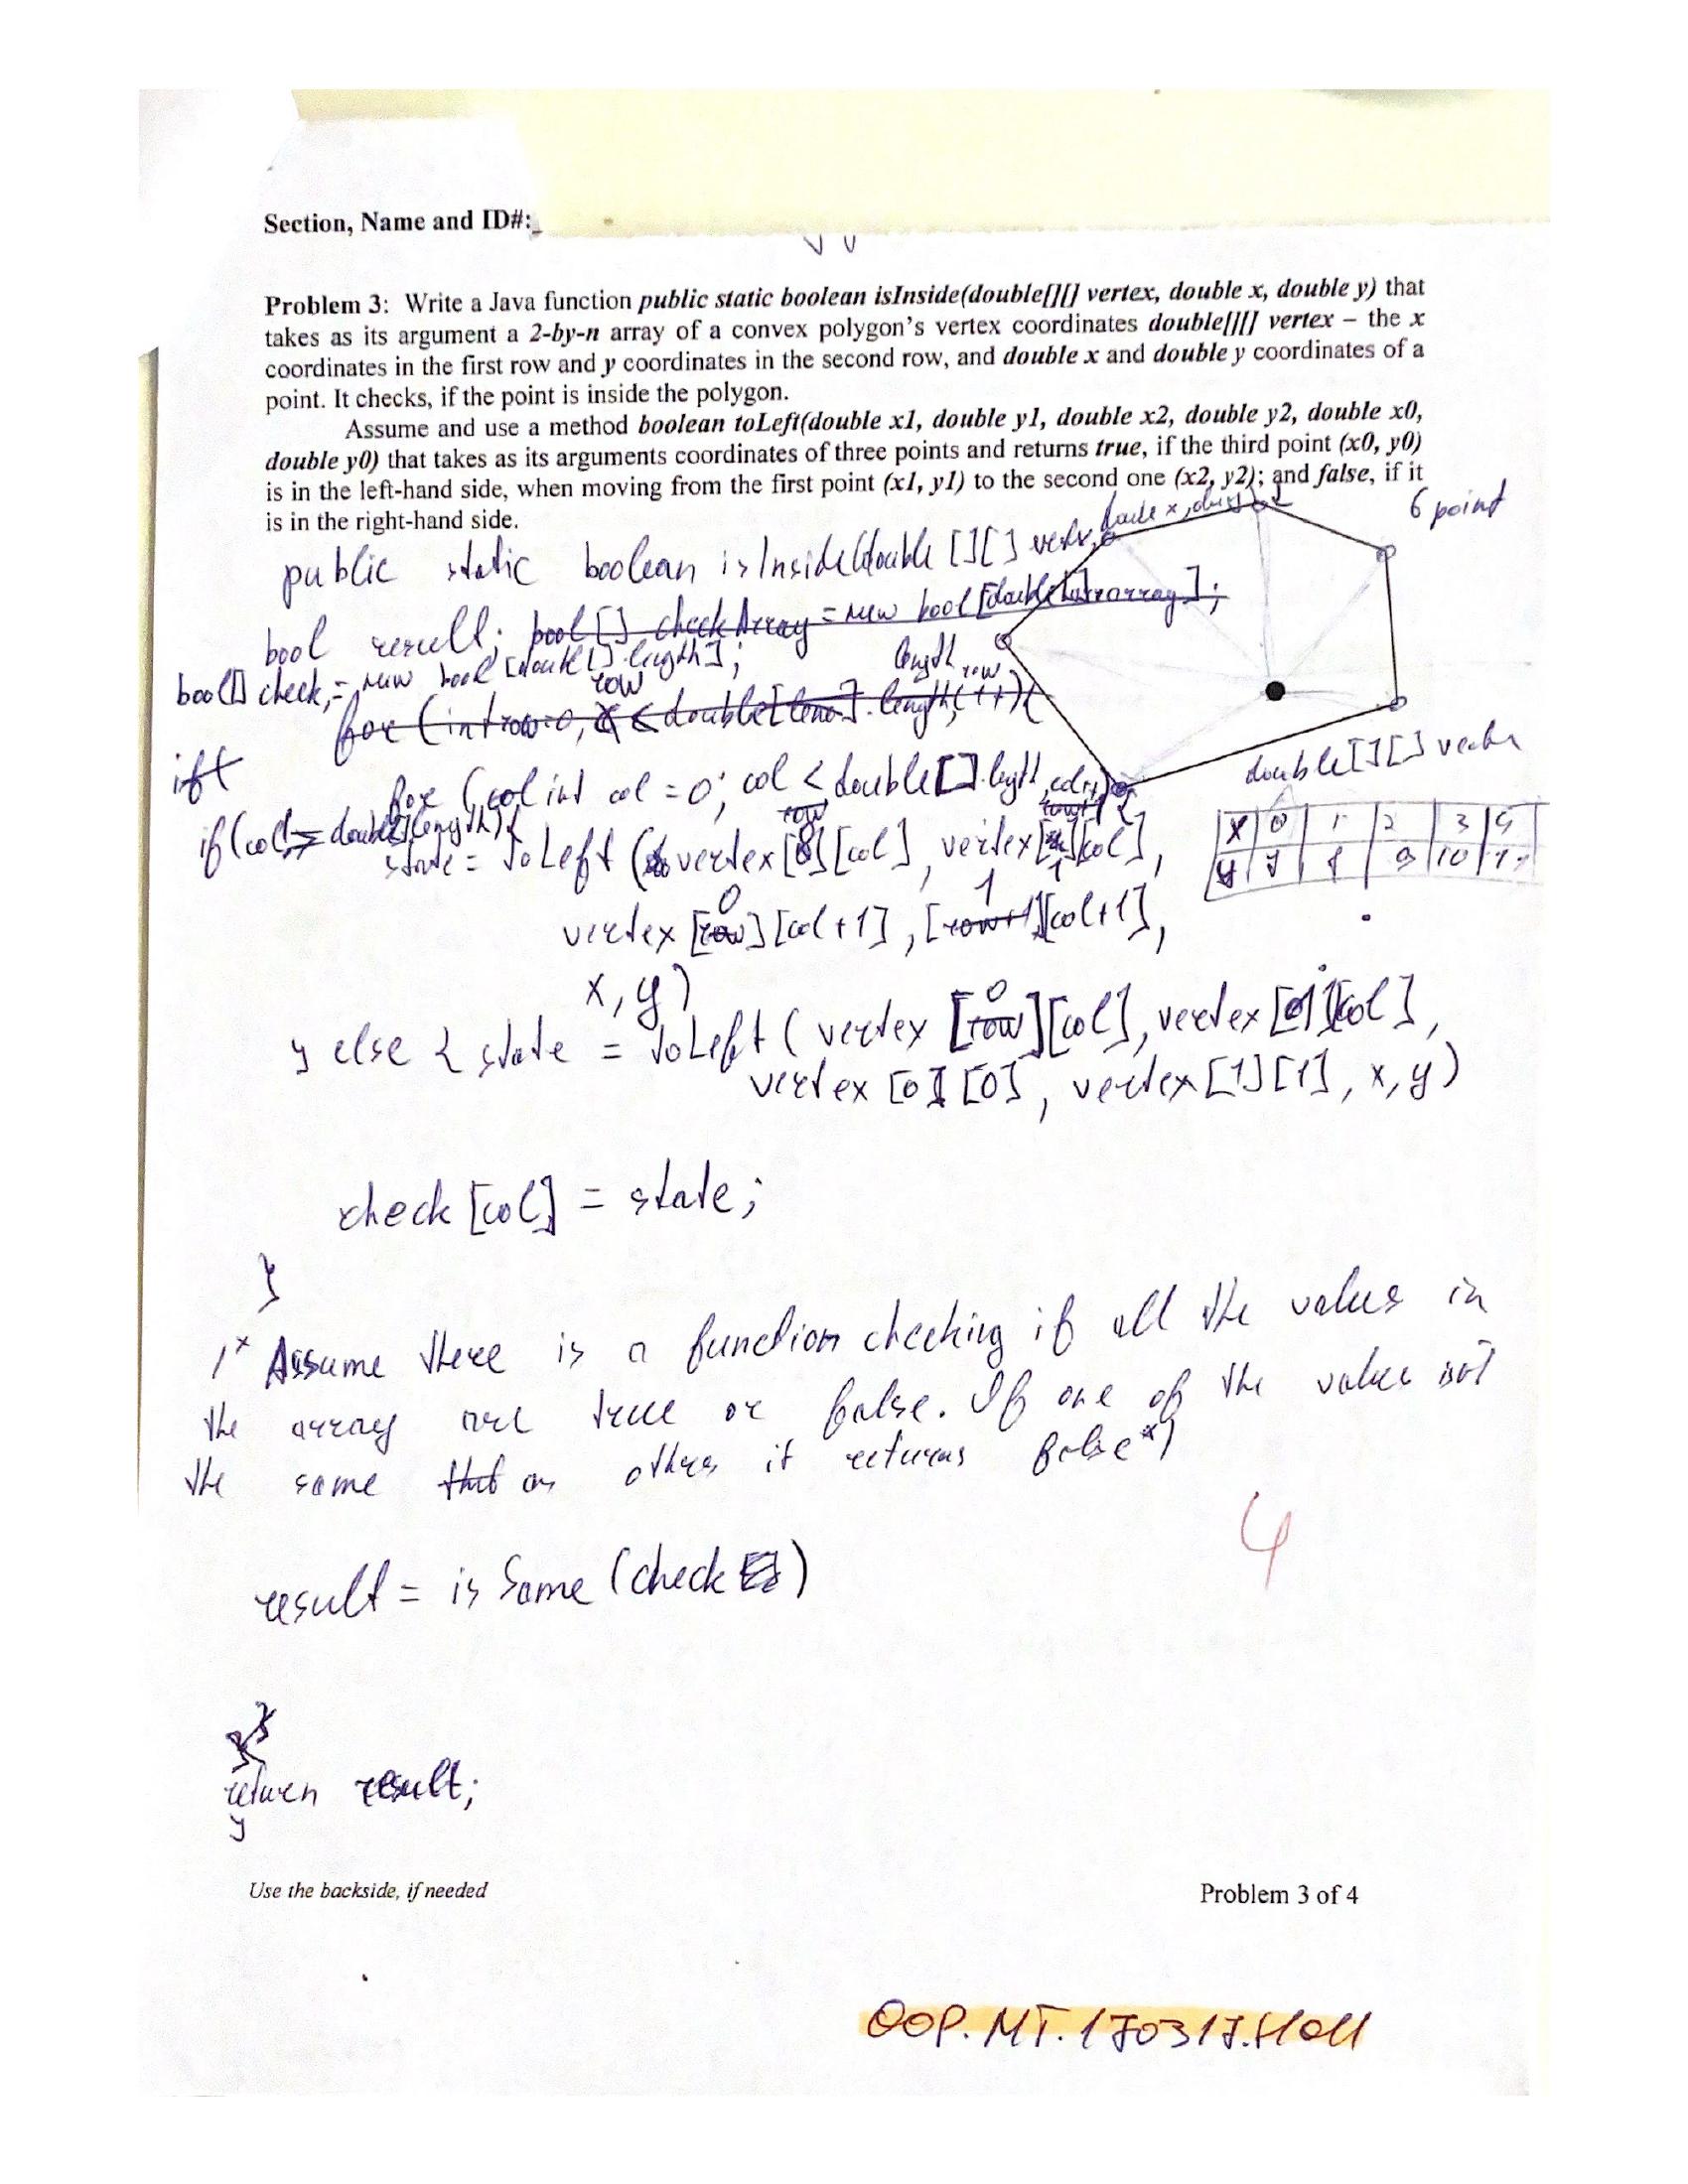 Section, Name and ID#:_
Problem 3: Write a Java function public static boolean isInside(double[][] vertex, double x, double y) that
takes as its argument a 2-by-n array of a convex polygon's vertex coordinates double[][] vertex – the x
coordinates in the first row and y coordinates in the second row, and double x and double y coordinates of a
point. It checks, if the point is inside the polygon.
Assume and use a method boolean toLeft(double x1, double y1, double x2, double y2, double x0,
double y0) that takes as its arguments coordinates of three points and returns true, if the third point (x0, y0)
is in the left-hand side, when moving from the first point (x1, y1) to the second one (x2, y2); and false, if it
is in the right-hand side.
6 point
public static boolean isInside(double [][]
bool result; bool[] checkArray = new bool
bool[] check = new bool [double[].length];
for (int row=0, row < double
length, row
ift
for (col int col = 0; col < double[].length, col++) {
double[][]
if(col double[].length){
state = toLeft (vertex[0][col], vertex[1][col],
x 0 1 2 3
y 10
vertex [0][col+1], [1][col+1],
x, y)
} else { state = toLeft ( vertex [0][col], vertex[1][col],
vertex [0][0], vertex[1][1], x, y)
check [col] = state;
}
/* Assume there is a function checking if all the values in
the array are true or false. If one of the values not
the same that as others it returns false */
result = is Same (check)
4
return result;
}
Use the backside, if needed
Problem 3 of 4
OOP. MT. 170317.